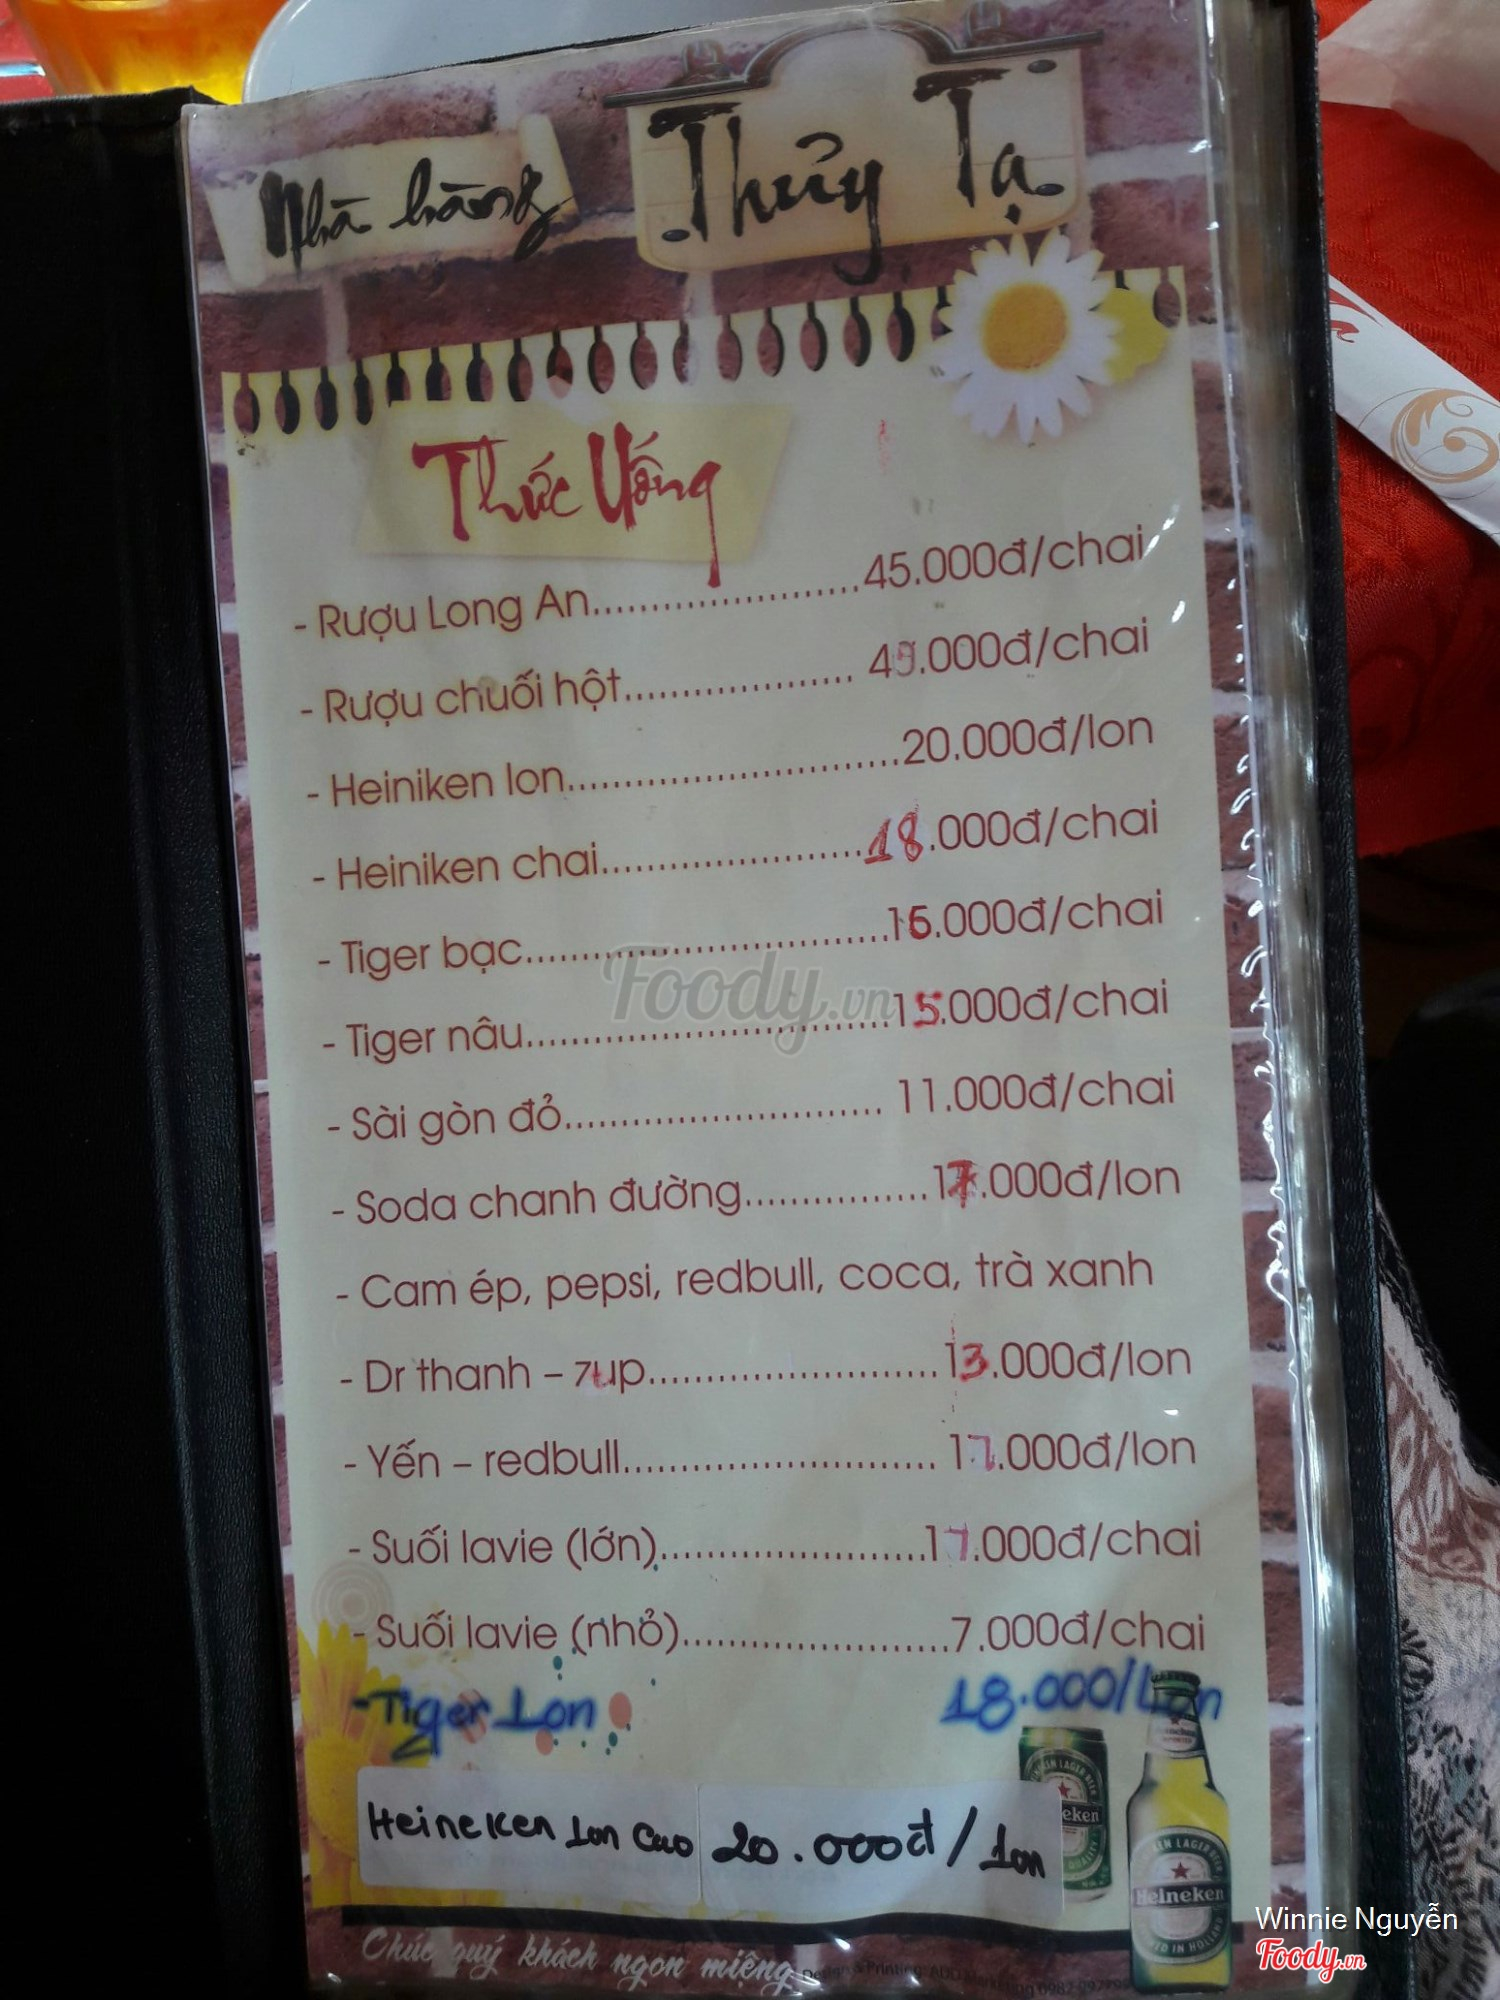 Nhà hàng Thủy Tạ
Thức Uống
- Rượu Long An.......................45.000đ/chai
- Rượu chuối hột.................... 49.000đ/chai
- Heiniken lon.............................20.000đ/lon
- Heiniken chai.......................18.000đ/chai
- Tiger bạc................................16.000đ/chai
- Tiger nâu................................15.000đ/chai
- Sài gòn đỏ............................ 11.000đ/chai
- Soda chanh đường................17.000đ/lon
- Cam ép, pepsi, redbull, coca, trà xanh
- Dr thanh – 7up..........................13.000đ/lon
- Yến – redbull............................ 17.000đ/lon
- Suối lavie (lớn)........................17.000đ/chai
- Suối lavie (nhỏ)........................7.000đ/chai
- Tiger Lon 18.000/Lon
Heineken Lon Cao 20.000đ/1on
Heineken
Chúc quý khách ngon miệng
Design & Printing:
Foody.vn
Winnie Nguyễn
Foody.vn